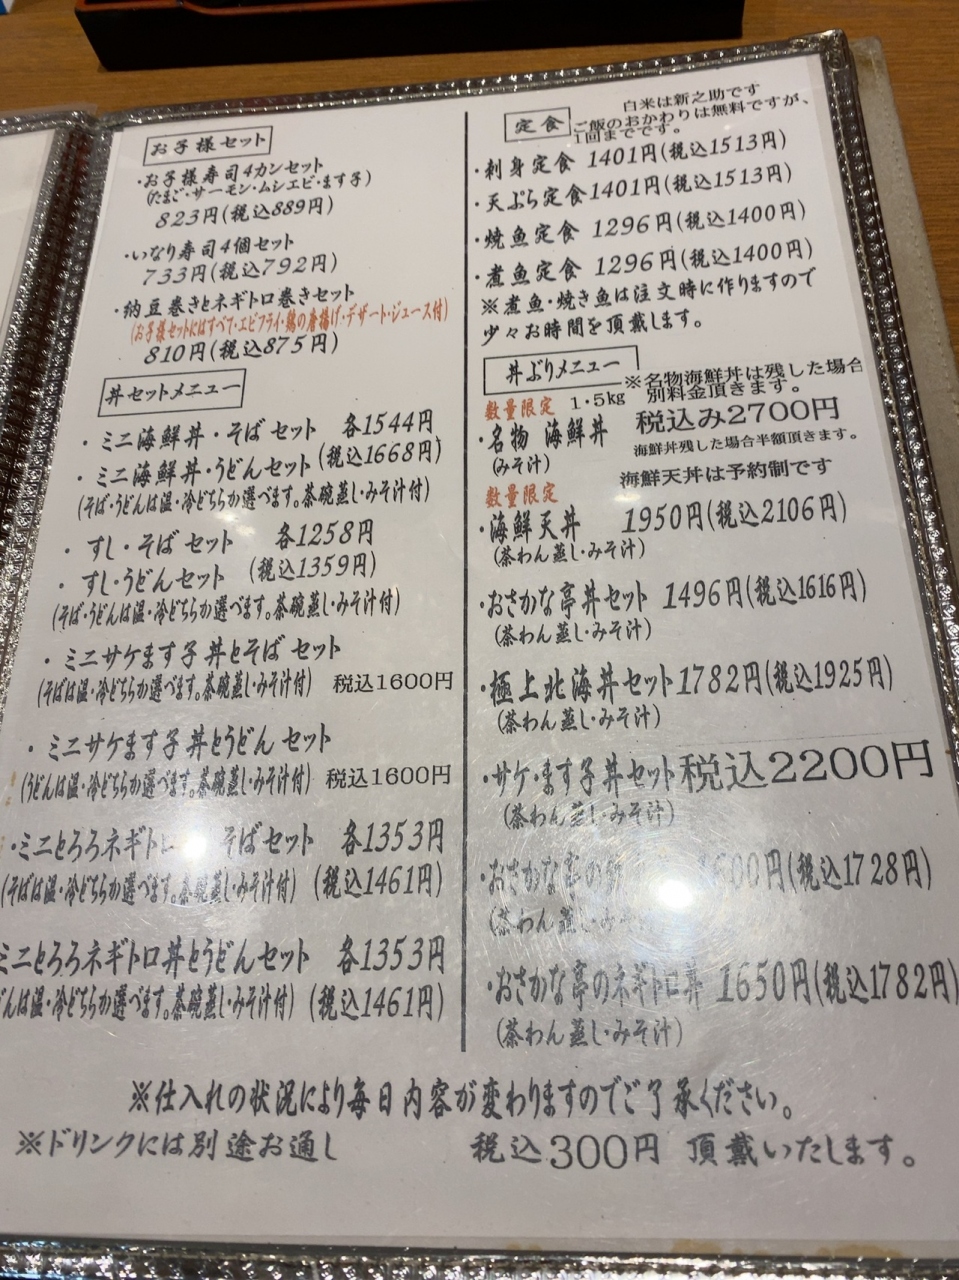 お子様セット
・お子様寿司4カンセット
(たまご・サーモン・ムシエビ・ます子)
823円(税込889円)
・いなり寿司4個セット
733円(税込792円)
・納豆巻きとネギトロ巻きセット
(お子様セットにはすべて・エビフライ・鶏の唐揚げ・デザート・ジュース付)
810円(税込875円)
丼セットメニュー
・ミニ海鮮丼・そばセット 各1544円
・ミニ海鮮丼・うどんセット(税込1668円)
(そば・うどんは温・冷どちらか選べます。茶碗蒸し・みそ汁付)
・すし・そばセット 各1258円
・すし・うどんセット (税込1359円)
(そば・うどんは温・冷どちらか選べます。茶碗蒸し・みそ汁付)
・ミニサケます子丼とそばセット
(そばは温・冷どちらか選べます。茶碗蒸し・みそ汁付) 税込1600円
・ミニサケます子丼とうどんセット
(うどんは温・冷どちらか選べます。茶碗蒸し・みそ汁付) 税込1600円
・ミニとろろネギトロ そばセット 各1353円
(そばは温・冷どちらか選べます。茶碗蒸し・みそ汁付) (税込1461円)
ミニとろろネギトロ丼とうどんセット 各1353円
どんは温・冷どちらか選べます。茶碗蒸し・みそ汁付) (税込1461円)
定食
白米は新之助です
ご飯のおかわりは無料ですが、
1回までです。
・刺身定食 1401円(税込1513円)
・天ぷら定食1401円(税込1513円)
・焼魚定食 1296円(税込1400円)
・煮魚定食 1296円(税込1400円)
※煮魚・焼き魚は注文時に作りますので
少々お時間を頂戴します。
丼ぶりメニュー
※名物海鮮丼は残した場合
別料金頂きます。
数量限定 1・5kg
・名物 海鮮丼 税込み2700円
(みそ汁) 海鮮丼残した場合半額頂きます。
海鮮天丼は予約制です
数量限定
・海鮮天丼 1950円(税込2106円)
(茶わん蒸し・みそ汁)
・おさかな亭丼セット 1496円(税込1616円)
(茶わん蒸し・みそ汁)
・極上北海丼セット1782円(税込1925円)
(茶わん蒸し・みそ汁)
・サケ・ます子丼セット税込2200円
(茶わん蒸し・みそ汁)
・おさかな亭の 600円(税込1728円)
(茶わん蒸し・みそ
・おさかな亭のネギトロ丼 1650円(税込1782円)
(茶わん蒸し・みそ汁)
※仕入れの状況により毎日内容が変わりますのでご了承ください。
※ドリンクには別途お通し 税込300円 頂戴いたします。